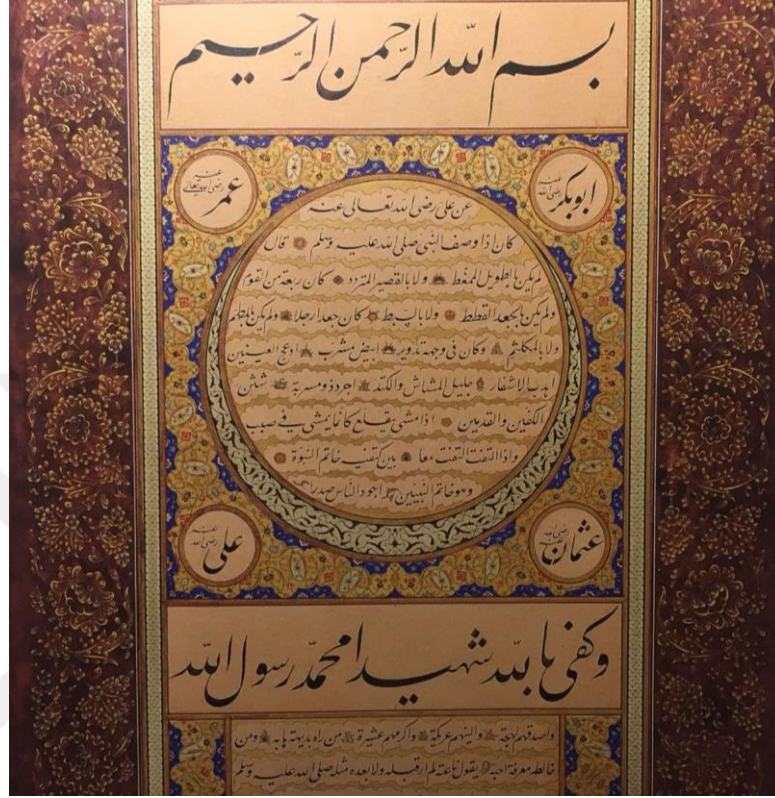 بسم الله الرحمن الرحيم
ابوبكر رضى الله عنه
عمر رضى الله تعالى عنه
عن على رضى الله تعالى عنه
كان اذا وصف النبى صلى الله عليه وسلم قال
لم يكن بالطويل الممغط ولا بالقصير المتردد كان ربعة من القوم
ولم يكن بالجعد القطط ولا بالسبط كان جعدا رجلا ولم يكن بالمطهم
ولا بالمكلثم وكان فى وجهه تدوير ابيض مشرب ادعج العينين
اهدب الاشفار جليل المشاش والكتد اجرد ذو مسربة شثن
الكفين والقدمين اذا مشى يتقلع كانما يمشى فى صبب
واذا التفت التفت معا بين كتفيه خاتم النبوة
وهو خاتم النبيين اجود الناس صدرا
عثمان رضى الله عنه
على رضى الله عنه
وكفى بالله شهيدا محمد رسول الله
واصدقهم لهجة والينهم عريكة واكرمهم عشيرة من راه بديهة هابه ومن
خالطه معرفة احبه يقول ناعته لم ار قبله ولا بعده مثله صلى الله عليه وسلم